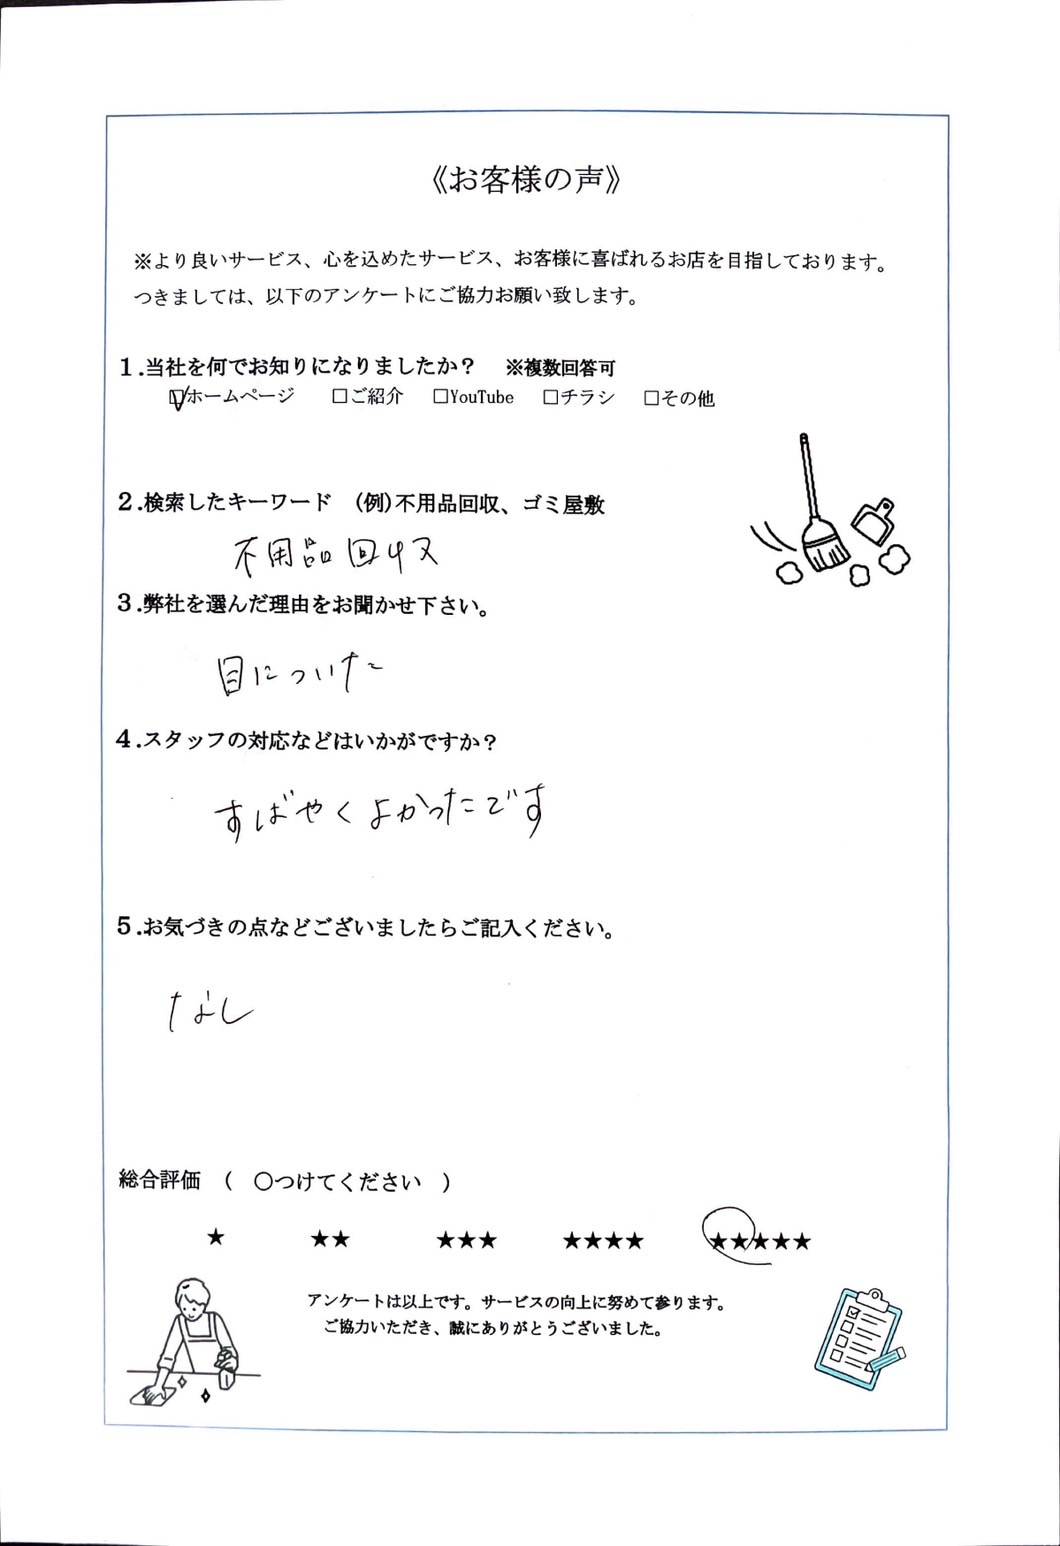 《お客様の声》
※より良いサービス、心を込めたサービス、お客様に喜ばれるお店を目指しております。
つきましては、以下のアンケートにご協力お願い致します。
1.当社を何でお知りになりましたか？　※複数回答可
☑ホームページ　□ご紹介　□YouTube　□チラシ　□その他
2.検索したキーワード　(例)不用品回収、ゴミ屋敷
不用品回収
3.弊社を選んだ理由をお聞かせ下さい。
目についた
4.スタッフの対応などはいかがですか？
すばやくよかったです
5.お気づきの点などございましたらご記入ください。
なし
総合評価　(　○つけてください　)
★　★★　★★★　★★★★　★★★★★
アンケートは以上です。サービスの向上に努めて参ります。
ご協力いただき、誠にありがとうございました。